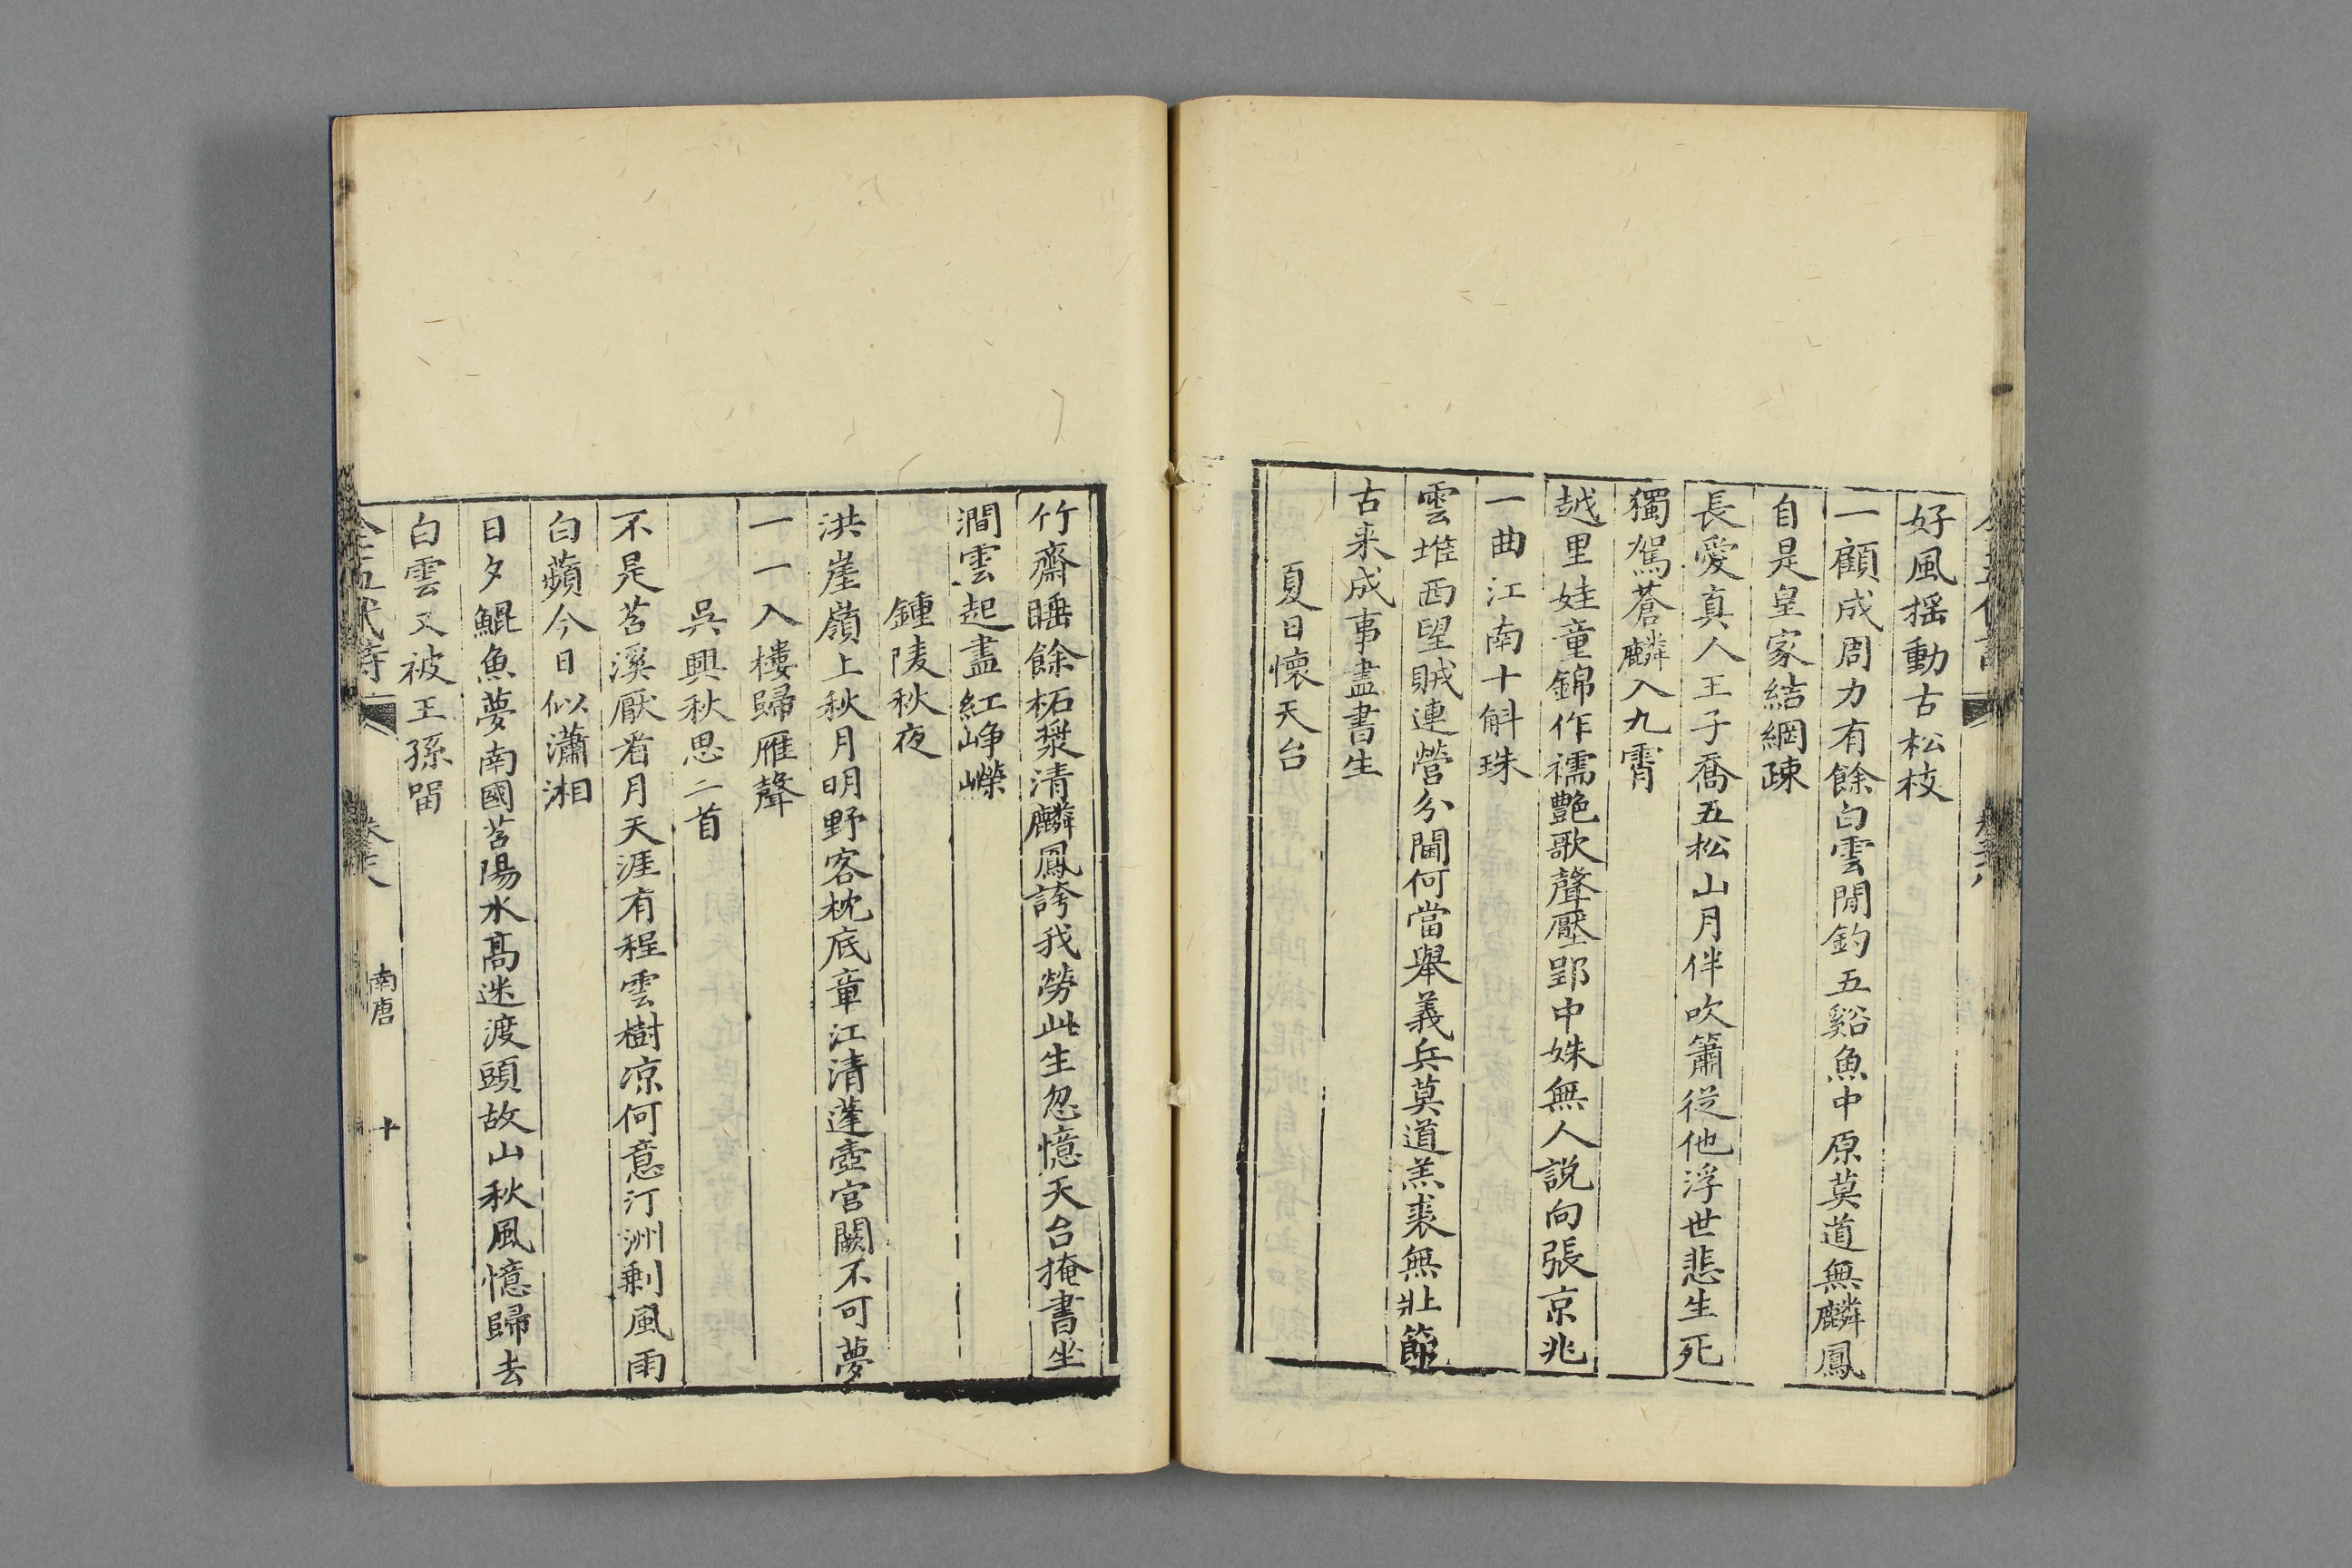 好風摇動古松枝
一顧成周力有餘白雲閒釣五谿魚中原莫道無麟鳳
自是皇家結網疎
長愛真人王子喬五松山月伴吹簫從他浮世悲生死
獨駕蒼麟入九霄
越里娃童錦作襦艶歌聲壓郢中姝無人説向張京兆
一曲江南十斛珠
雲堆西朢賊連營分閫何當舉義兵莫道羔裘無壯節
古来成事盡書生
夏日懷天台
竹齋睡餘柘漿清麟鳳誇我勞此生忽憶天台掩書坐
澗雲起盡紅峥嶸
鍾陵秋夜
洪崖嶺上秋月明野客枕底章江清蓬壺宫闕不可夢
一一入樓歸雁聲
吳興秋思二首
不是苕溪厭看月天涯有程雲樹凉何意汀洲剰風雨
白蘋今日似瀟湘
日夕鯤魚夢南國苕陽水髙迷渡頭故山秋風憶歸去
白雲又被王孫畱
全五代詩
南唐
十